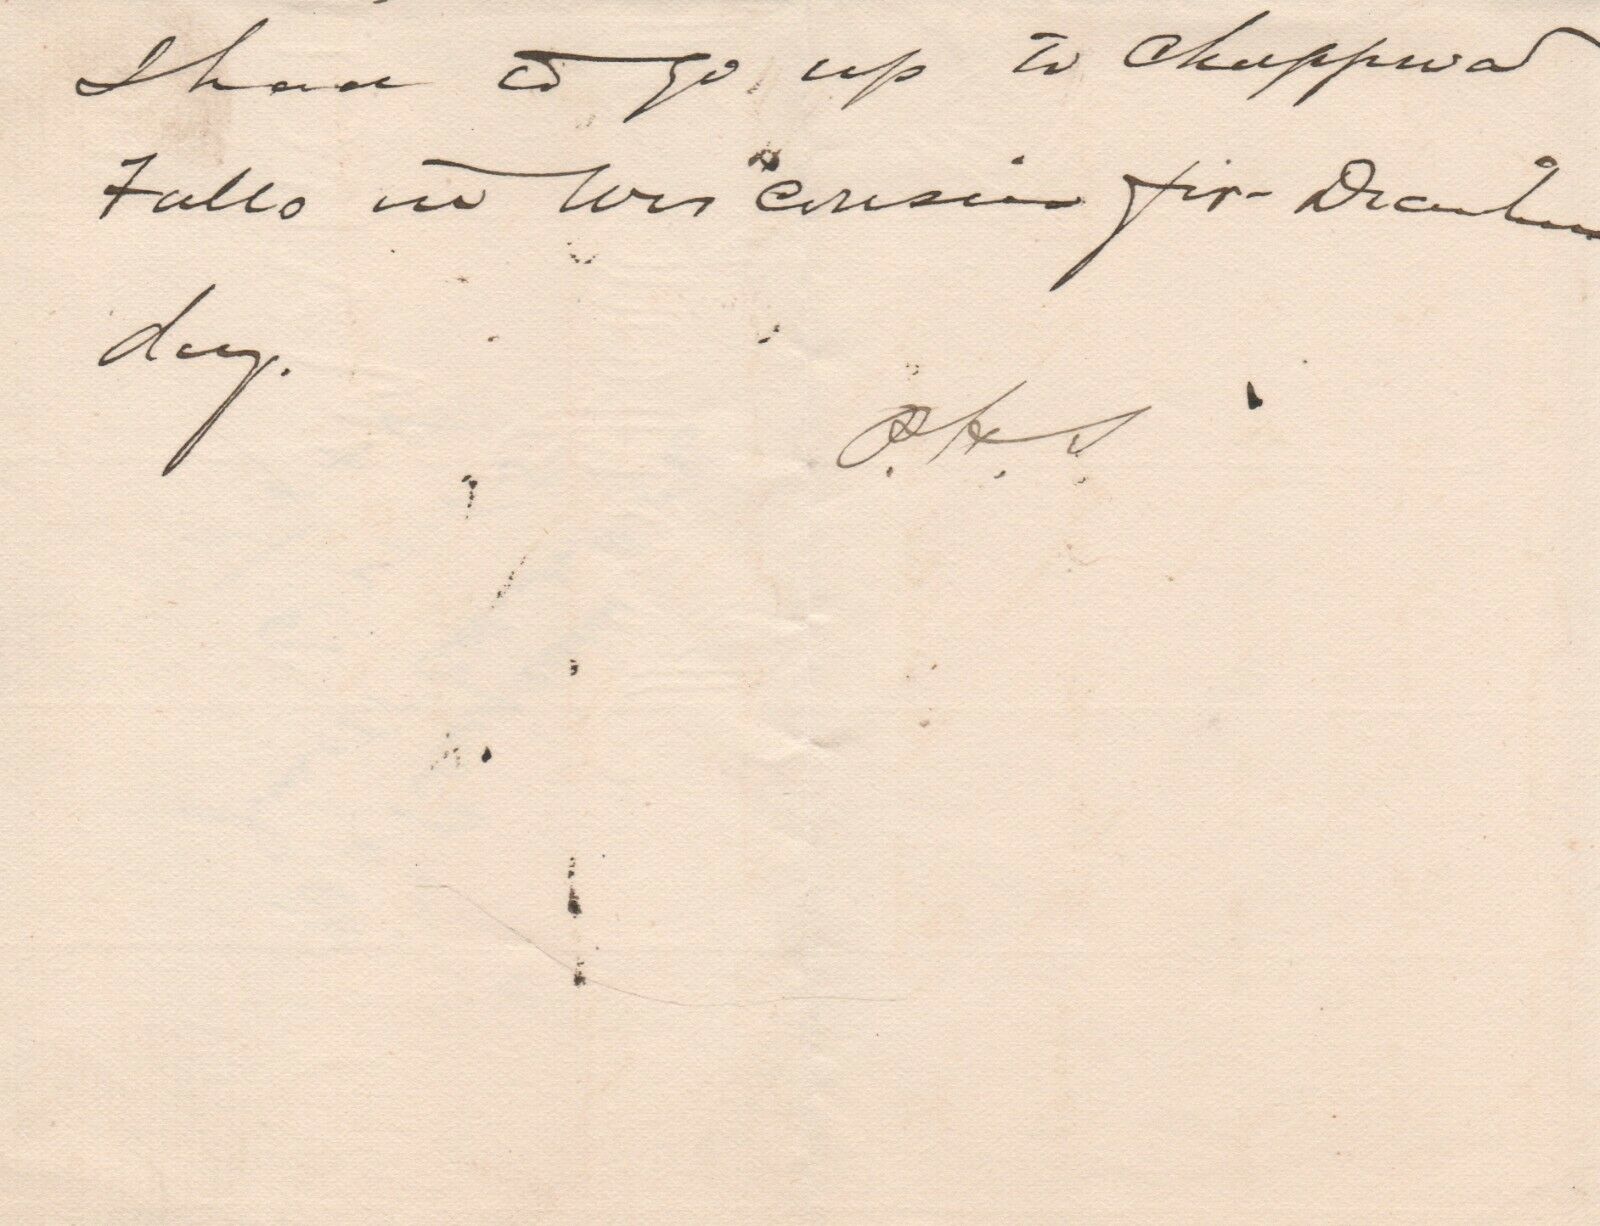 I had to go up to Chippewa
Falls in Wisconsin for Decoration
day.
P. H. S.